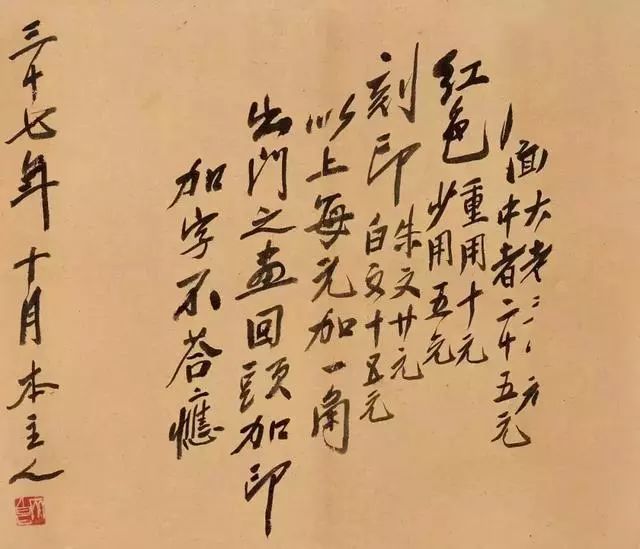 面
大者三
元
中者二十五元
紅色
重用十元
少用五元
刻印
朱文廿元
白文十五元
以上每元加一角
出門之畫回頭加印
加字不荅應
三十七年十月本主人